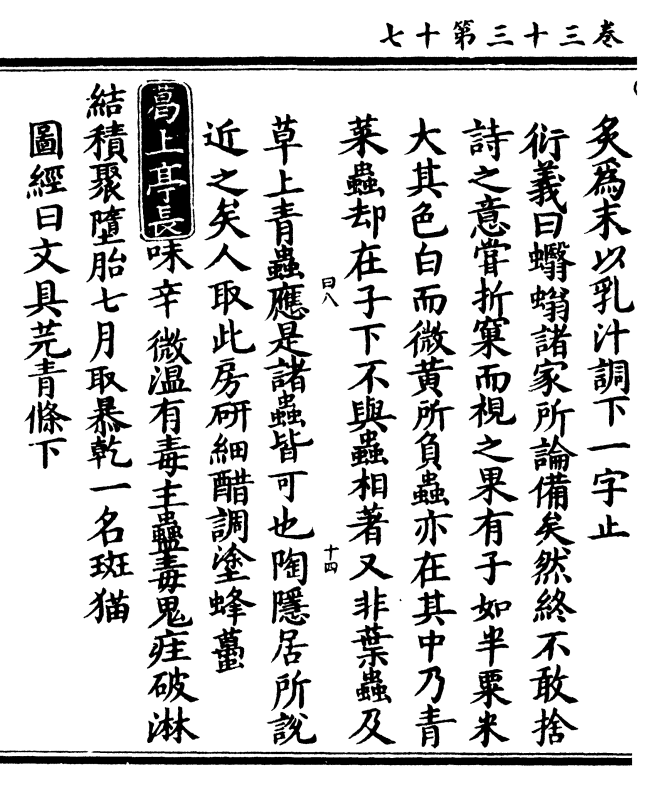 卷三十三第十七
炙爲末以乳汁調下一字止
衍義曰蠮螉諸家所論備矣然終不敢捨
詩之意嘗折窠而視之果有子如半粟米
大其色白而微黃所負蟲亦在其中乃青
菜蟲却在子下不與蟲相著又非葉蟲及
草上青蟲應是諸蟲皆可也陶隱居所說
近之矣人取此房研細醋調塗蜂蠆
葛上亭長味辛微溫有毒主蠱毒鬼疰破淋
結積聚墮胎七月取暴乾一名斑猫
圖經曰文具芫青條下
曰八
十四